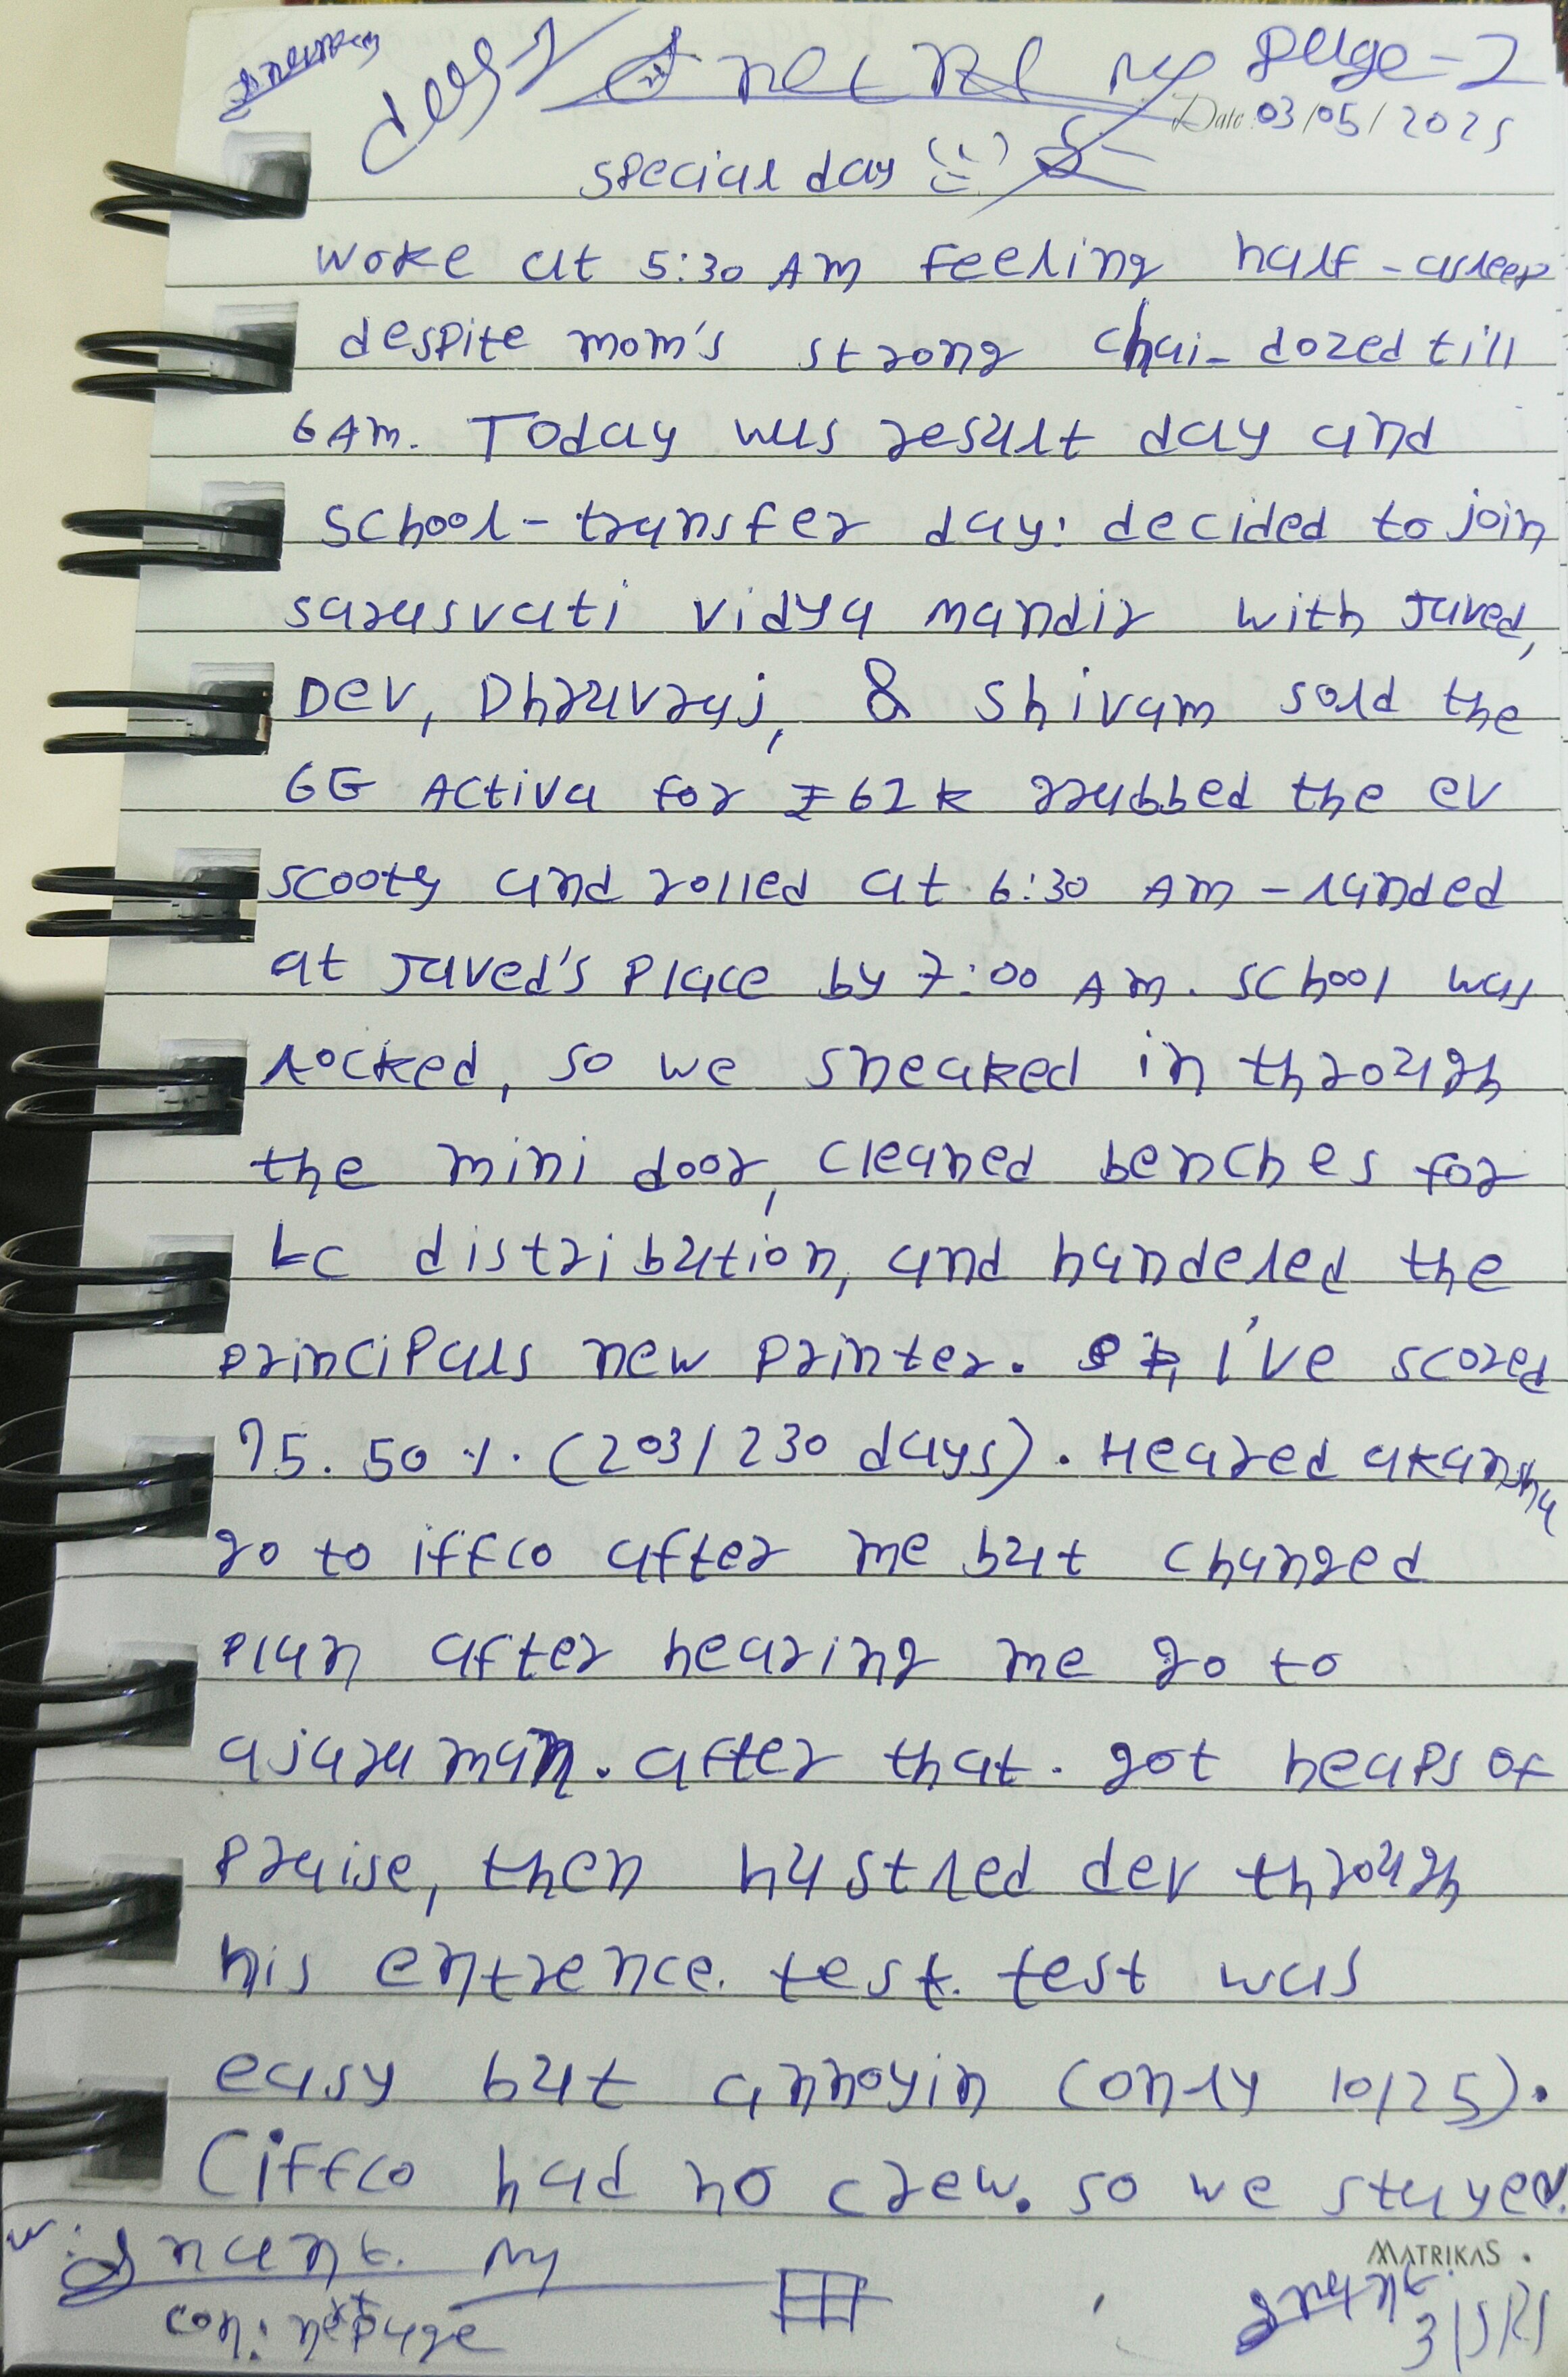 page-2
Date 03/05/2025
special day
woke at 5:30 AM feeling half-asleep
despite mom's strong chai- dozed till
6 Am. Today was result day and
school-transfer day: decided to join
sarasvati vidya mandir with Javed,
Dev, Dhruvraj, & shivam sold the
6G Activa for ₹62k grabbed the ev
scooty and rolled at 6:30 AM - landed
at Javed's place by 7:00 AM. school was
locked, so we sneaked in through
the mini door, cleaned benches for
LC distribution, and handeled the
principals new printer. I've scored
75.50%. (203/230 days). Heared akansha
go to iffco after me but changed
plan after hearing me go to
ajaraman. after that. got heaps of
praise, then hustled dev through
his entrence. test. test was
easy but annoyin (only 10/25).
(iffco had no crew. so we stayed.
con: next page
MATRIKAS